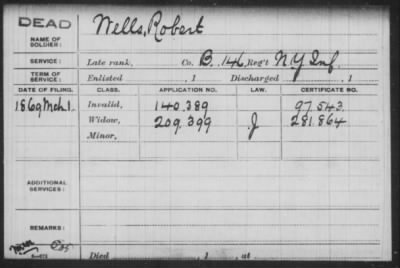 DEAD
NAME OF SOLDIER: Wells, Robert
SERVICE: Late rank, Co. B, 146, Reg't N.Y. Inf.
TERM OF SERVICE: Enlisted , 1 Discharged , 1
DATE OF FILING. CLASS. APPLICATION NO. LAW. CERTIFICATE NO.
1869 Mch 1. Invalid, 140.389 97.543
Widow, 209.399 J 281.864
Minor,
ADDITIONAL SERVICES:
REMARKS:
Died , 1 , at